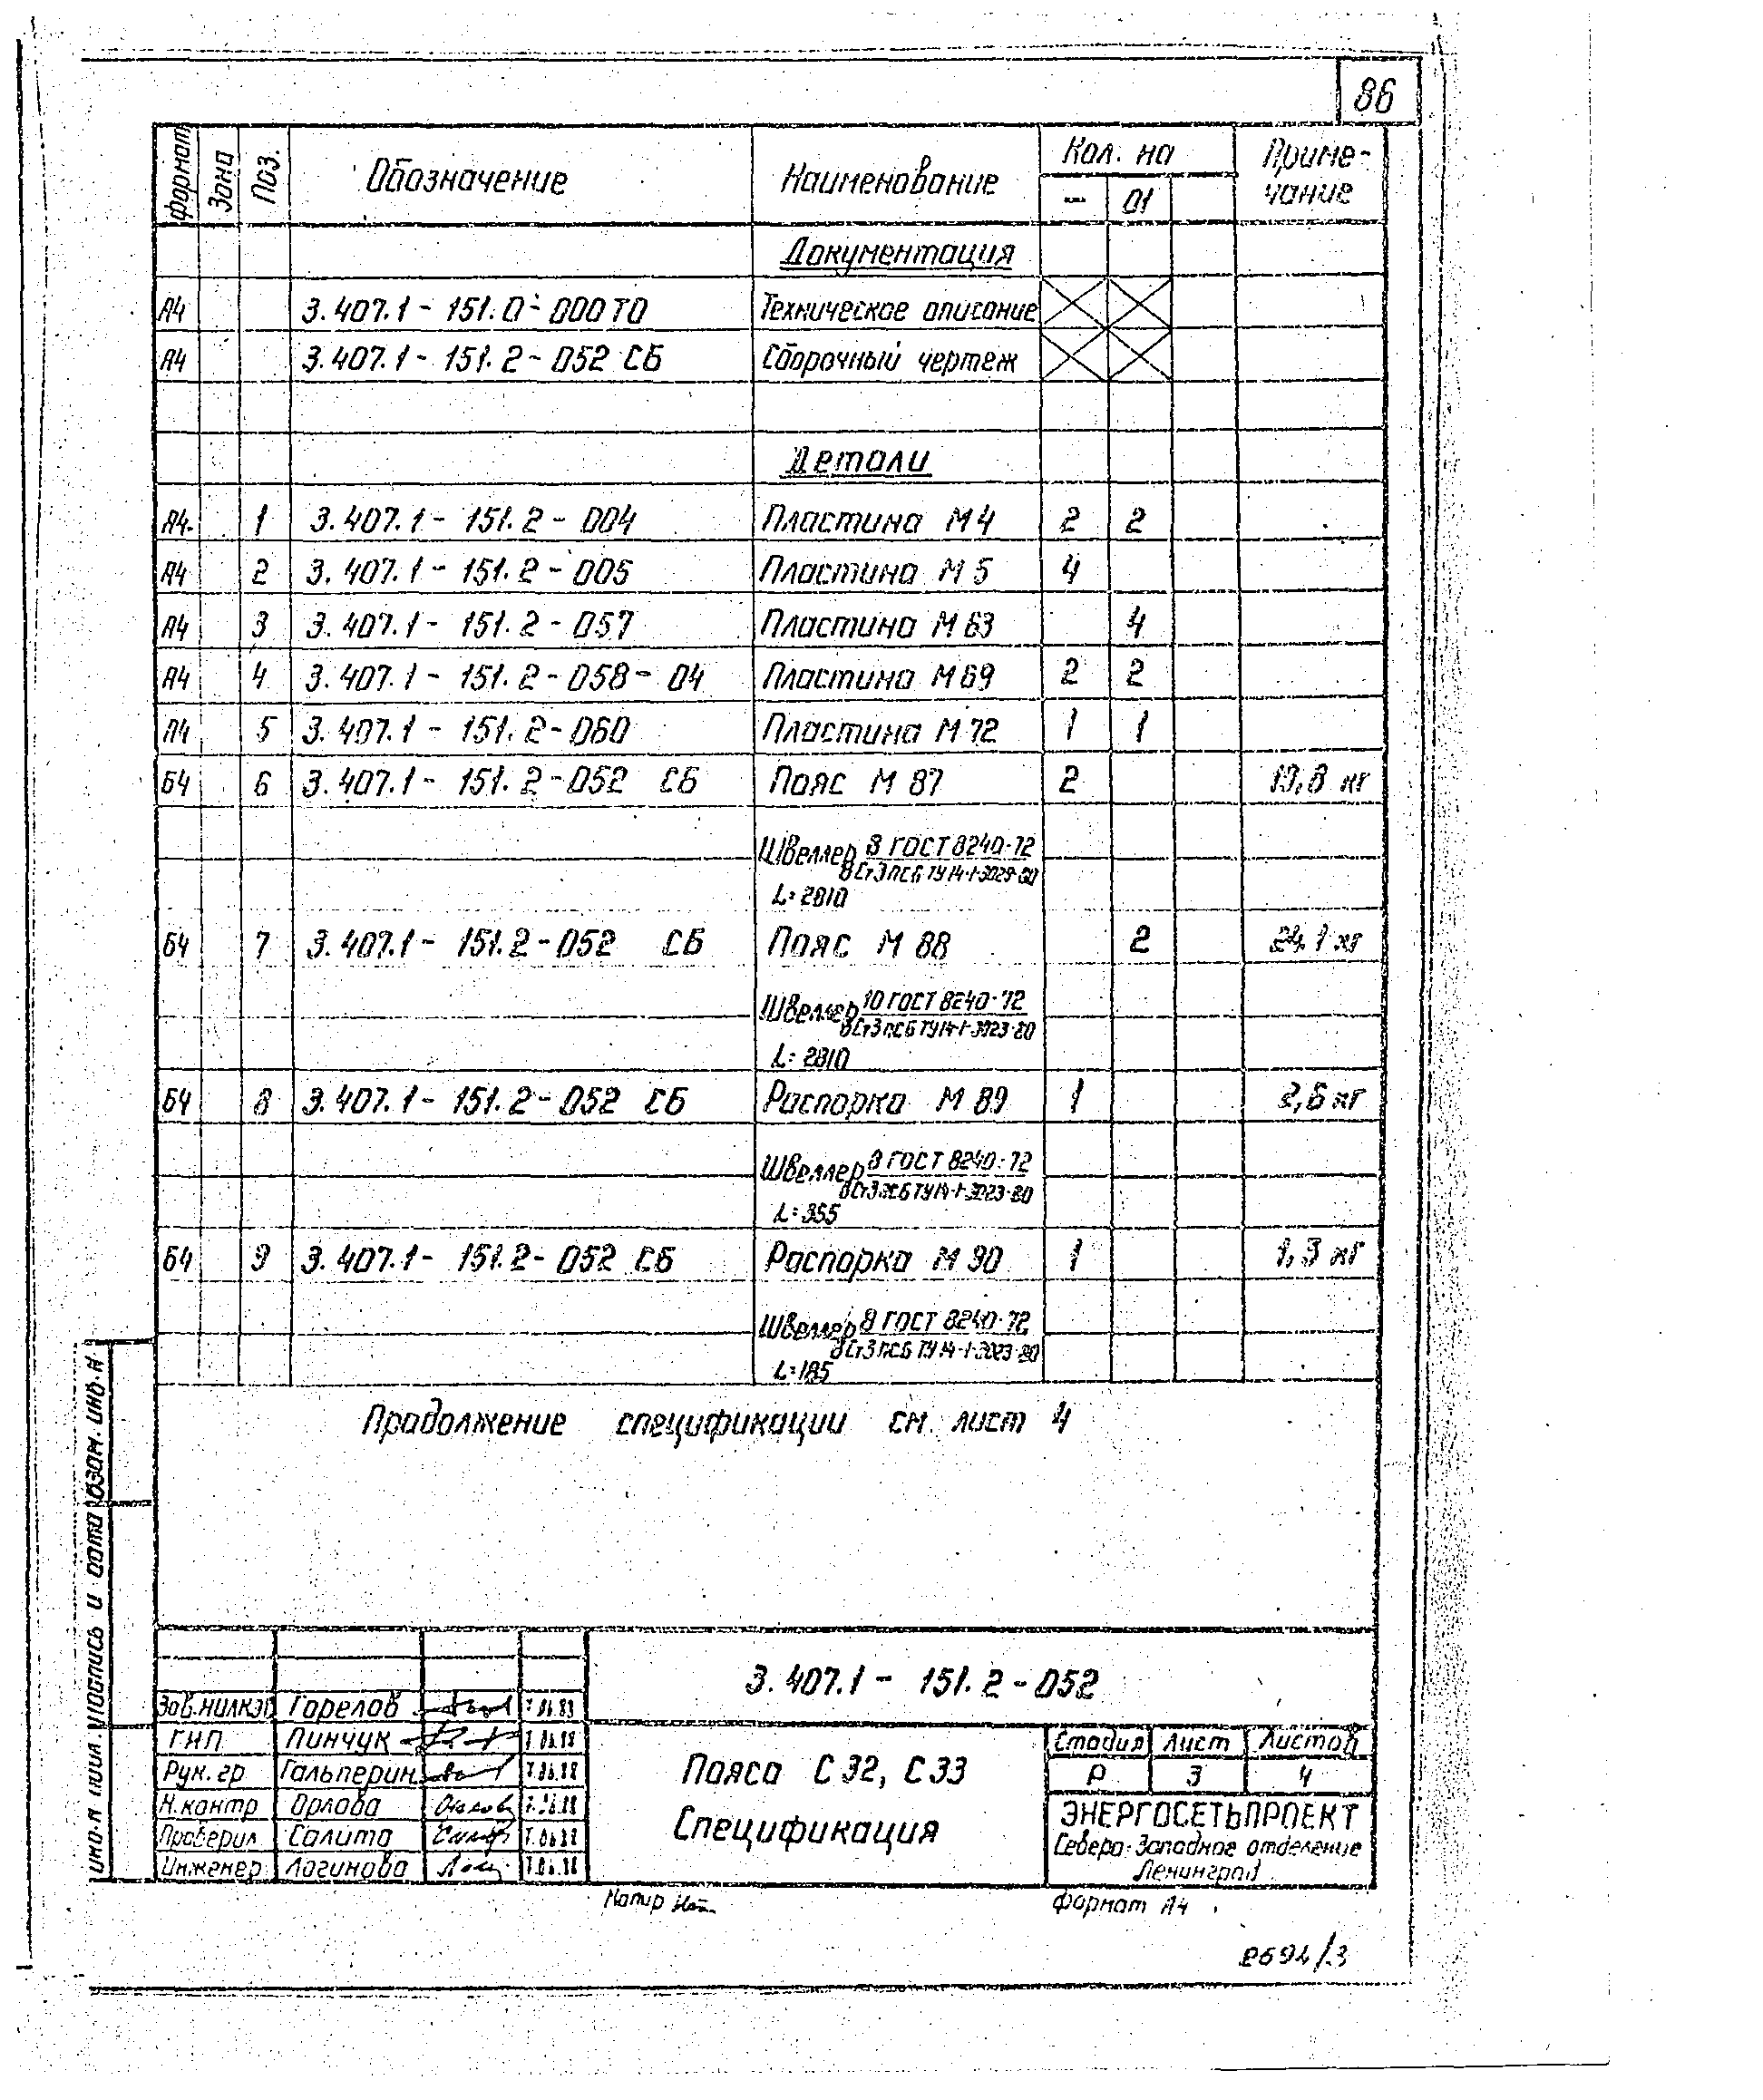 86
Формат Зона Поз. Обозначение Наименование Кол. на Приме-
чание
- 01
Документация
А4 3.407.1-151.0-000ТО Техническое описание
А4 3.407.1-151.2-052 СБ Сборочный чертеж
Детали
А4 1 3.407.1-151.2-004 Пластина М4 2 2
А4 2 3.407.1-151.2-005 Пластина М5 4
А4 3 3.407.1-151.2-057 Пластина М63 4
А4 4 3.407.1-151.2-058-04 Пластина М69 2 2
А4 5 3.407.1-151.2-060 Пластина М72 1 1
Б4 6 3.407.1-151.2-052 СБ Пояс М 87 2 19,8 кг
Швеллер 8 ГОСТ 8240-72
ВСт3пс6 ТУ14-1-3023-80
L=2810
Б4 7 3.407.1-151.2-052 СБ Пояс М 88 2 24,1 кг
Швеллер 10 ГОСТ 8240-72
ВСт3пс6 ТУ14-1-3023-80
L=2810
Б4 8 3.407.1-151.2-052 СБ Распорка М 89 1 2,6 кг
Швеллер 8 ГОСТ 8240-72
ВСт3пс6 ТУ14-1-3023-80
L=355
Б4 9 3.407.1-151.2-052 СБ Распорка М 90 1 1,3 кг
Швеллер 8 ГОСТ 8240-72
ВСт3пс6 ТУ14-1-3023-80
L=185
Продолжение спецификации см. лист 4
Инв.N подл. Подпись и дата Взам.инв.N
3.407.1-151.2-052
Зав.НИЛКЭС Горелов
ГИП Пинчук
Рук.гр Гальперин
Н.контр Орлова
Проверил Салита
Инженер Логинова
Пояса С32, С33
Спецификация
Стадия Лист Листов
Р 3 4
ЭНЕРГОСЕТЬПРОЕКТ
Северо-Западное отделение
Ленинград
Копир
Формат А4
2694/3